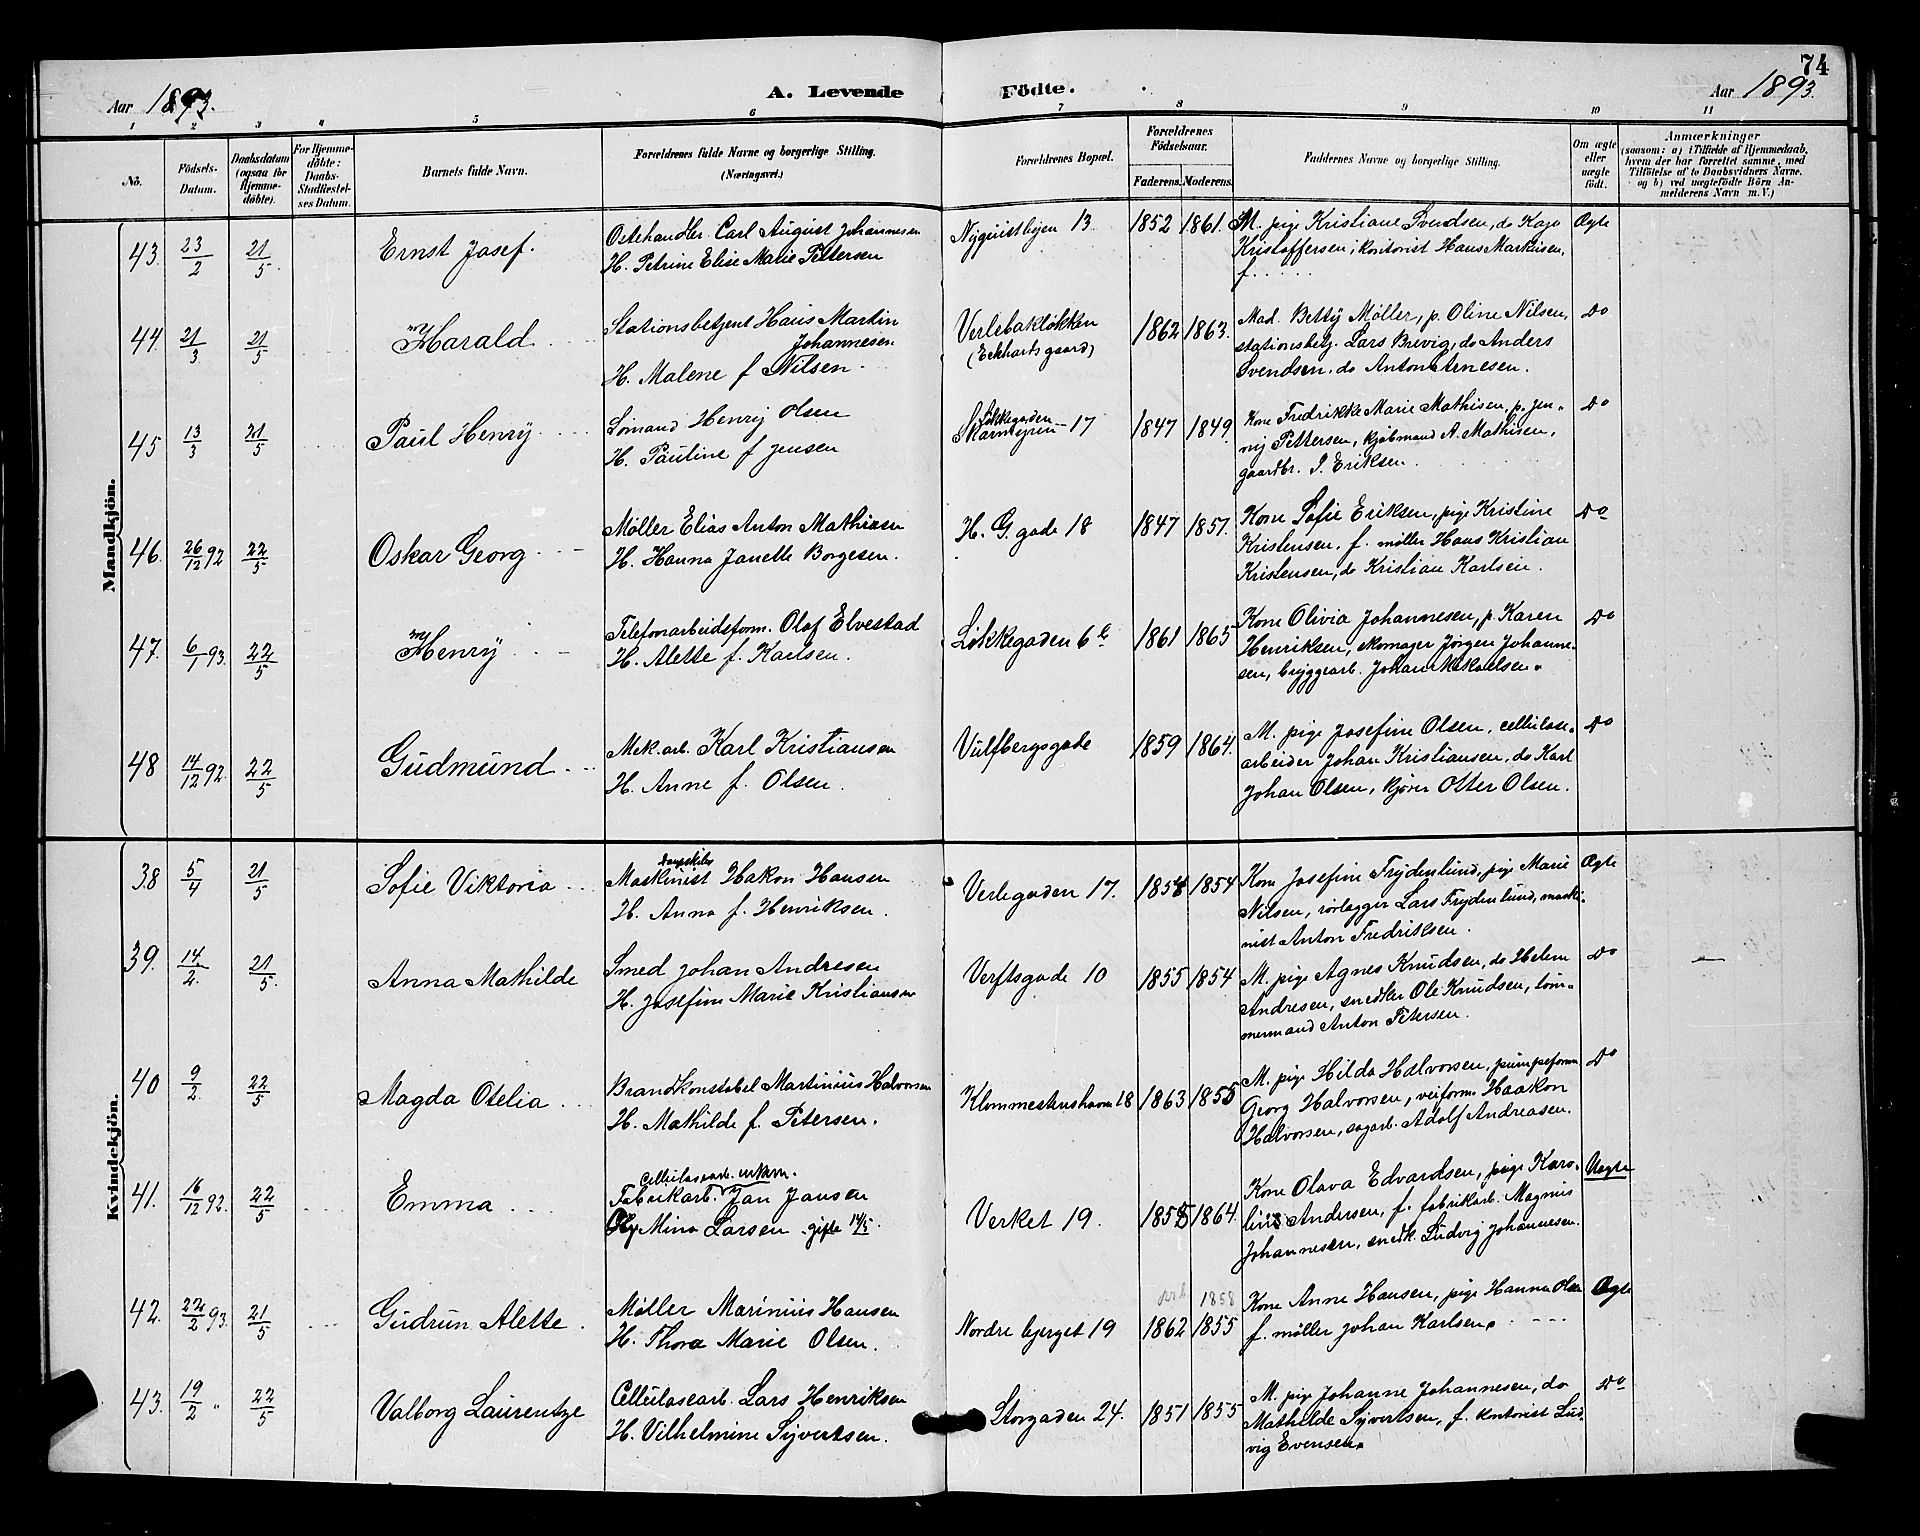 74
Aar 1893.
A. Levende Födte.
Aar 1893.
1 2 3 4 5 6 7 8 9 10 11
No.
Födsels-Datum.
Daabsdatum (ogsaa for Hjemme-döbte).
For Hjemme-döbte: Daabs-Stadfæstel-ses Datum.
Barnets fulde Navn.
Forældrenes fulde Navne og borgerlige Stilling. (Næringsvei.)
Forældrenes Bopæl.
Forældrenes Födselsaar.
Faderens. Moderens.
Faddernes Navne og borgerlige Stilling.
Om ægte eller uægte födt.
Anmærkninger
(saasom: a) i Tilfælde af Hjemmedaab,
hvem der har forrettet samme, med
Tilföielse af to Daabsvidners Navne.
og b) ved uægtefödte Börn An-
melderens Navn m.V.)
Mandkjön.
43. 23/2 21/5. Ernst Josef.
Ostehandler Carl August Johannesen
H. Petrine Elise Marie Pettersen
Nyquistbyen 13. 1852 1861.
M. pige Kristiane Svendsen, do Kaja
Kristoffersen, kontorist Hans Markisen,
f.
Ægte
44. 21/3 21/5 Harald
Stationsbetjent Hans Martin
Johannesen
H. Malene f Nilsen.
Verlebakløkken
(Eckhartsgaard)
1862 1863.
Mad. Betty Møller, p. Oline Nilsen,
stationsbetj. Lars Brevig, do Anders
Svendsen, do Anton Arnesen.
Do
45 13/3 21/5 Paul Henry
Sömand Henry Olsen
H. Pauline f Jensen
Løkkegaden 17 1847 1849.
Kone Fredrikke Marie Mathisen, p. Jen-
nij Pettersen, kjøbmand A. Mathisen,
gaardbr. P. Eriksen.
Do
46. 26/12 92 22/5 Oskar Georg
Møller Elias Anton Mathisen
H. Hanna Janette Borgesen.
H. G. gade 18 1847 1857.
Kone Sofie Eriksen, pige Kristine
Kristensen, f. møller Hans Kristian
Kristensen, do Kristian Karlsen.
Do
47. 6/1 93. 22/5 Henry
Telefonarbeidsform. Olaf Elvestad
H. Alette f. Karlsen.
Løkkegaden 6b 1861 1865
Kone Olivia Johannesen, p. Karen
Henriksen, skomager Jørgen Johanne-
sen, bryggearb. Johan Mikaelsen.
Do
48 14/12 92. 22/5 Gudmund
Mek. arb. Karl Kristiansen
H. Anne f. Olsen.
Vulfbergsgade 1859 1864.
M. pige Josefine Olsen, cellulose-
arbeider Johan Kristiansen, do Karl
Johan Olsen, kjører Otter Olsen.
Do
Kvindekjön.
38 5/4 21/5 Sofie Viktoria
Maskinist Hakon Hansen
H. Anna f. Henriksen.
Verlegaden 17. 1854 1854
Kone Josefine Frydenlund, pige Marie
Nilsen, rørlægger Lars Frydenlund, maski-
nist Anton Fredriksen.
Ægte
39. 14/2. 21/5. Anna Mathilde
Smed Johan Andresen
H. Josefine Marie Kristiansen
Verftsgade 10 1855 1854
M. pige Agnes Knudsen, do Helene
Andresen, snedker Ole Knudsen, töm-
mermand Anton Petersen.
Do
40 9/2. 22/5 Magda Otelia
Brandkonstabel Martinius Halvorsen
H. Mathilde f. Petersen.
Klommestenshavn 18 1863 1855
M. pige Hilda Halvorsen, pumpeform
Georg Halvorsen, veiform. Haakon
Halvorsen, sagarb. Adolf Andreasen.
Do
41. 16/12 92. 22/5 Emma
Cellulosearb.
Fabrikarb. Jan Jansen
Mina Larsen gift 14/5.
Verket 19. 1855 1864.
Kone Olava Edvardsen, pige Karo-
line Andersen, f. fabrikarb. Magnus
Johannesen, snedk. Ludvig Johannesen.
Uægte
42. 22/2 93. 21/5 Gudrun Alette.
Møller Marinius Hansen
H. Thora Marie Olsen.
Nordre bjerget 19 1862 1858 1855
Kone Anne Hansen, pige Hanna Olsen
f. møller Johan Karlsen.
Ægte
43. 19/2 " 22/5 Valborg Laurentze
Cellulosearb. Lars Henriksen
H. Vilhelmine Syvertsen.
Storgaden 24. 1851 1855
M. pige Johanne Johannesen, do
Mathilde Syvertsen, f. kontorist Lud-
vig Evensen.
Do